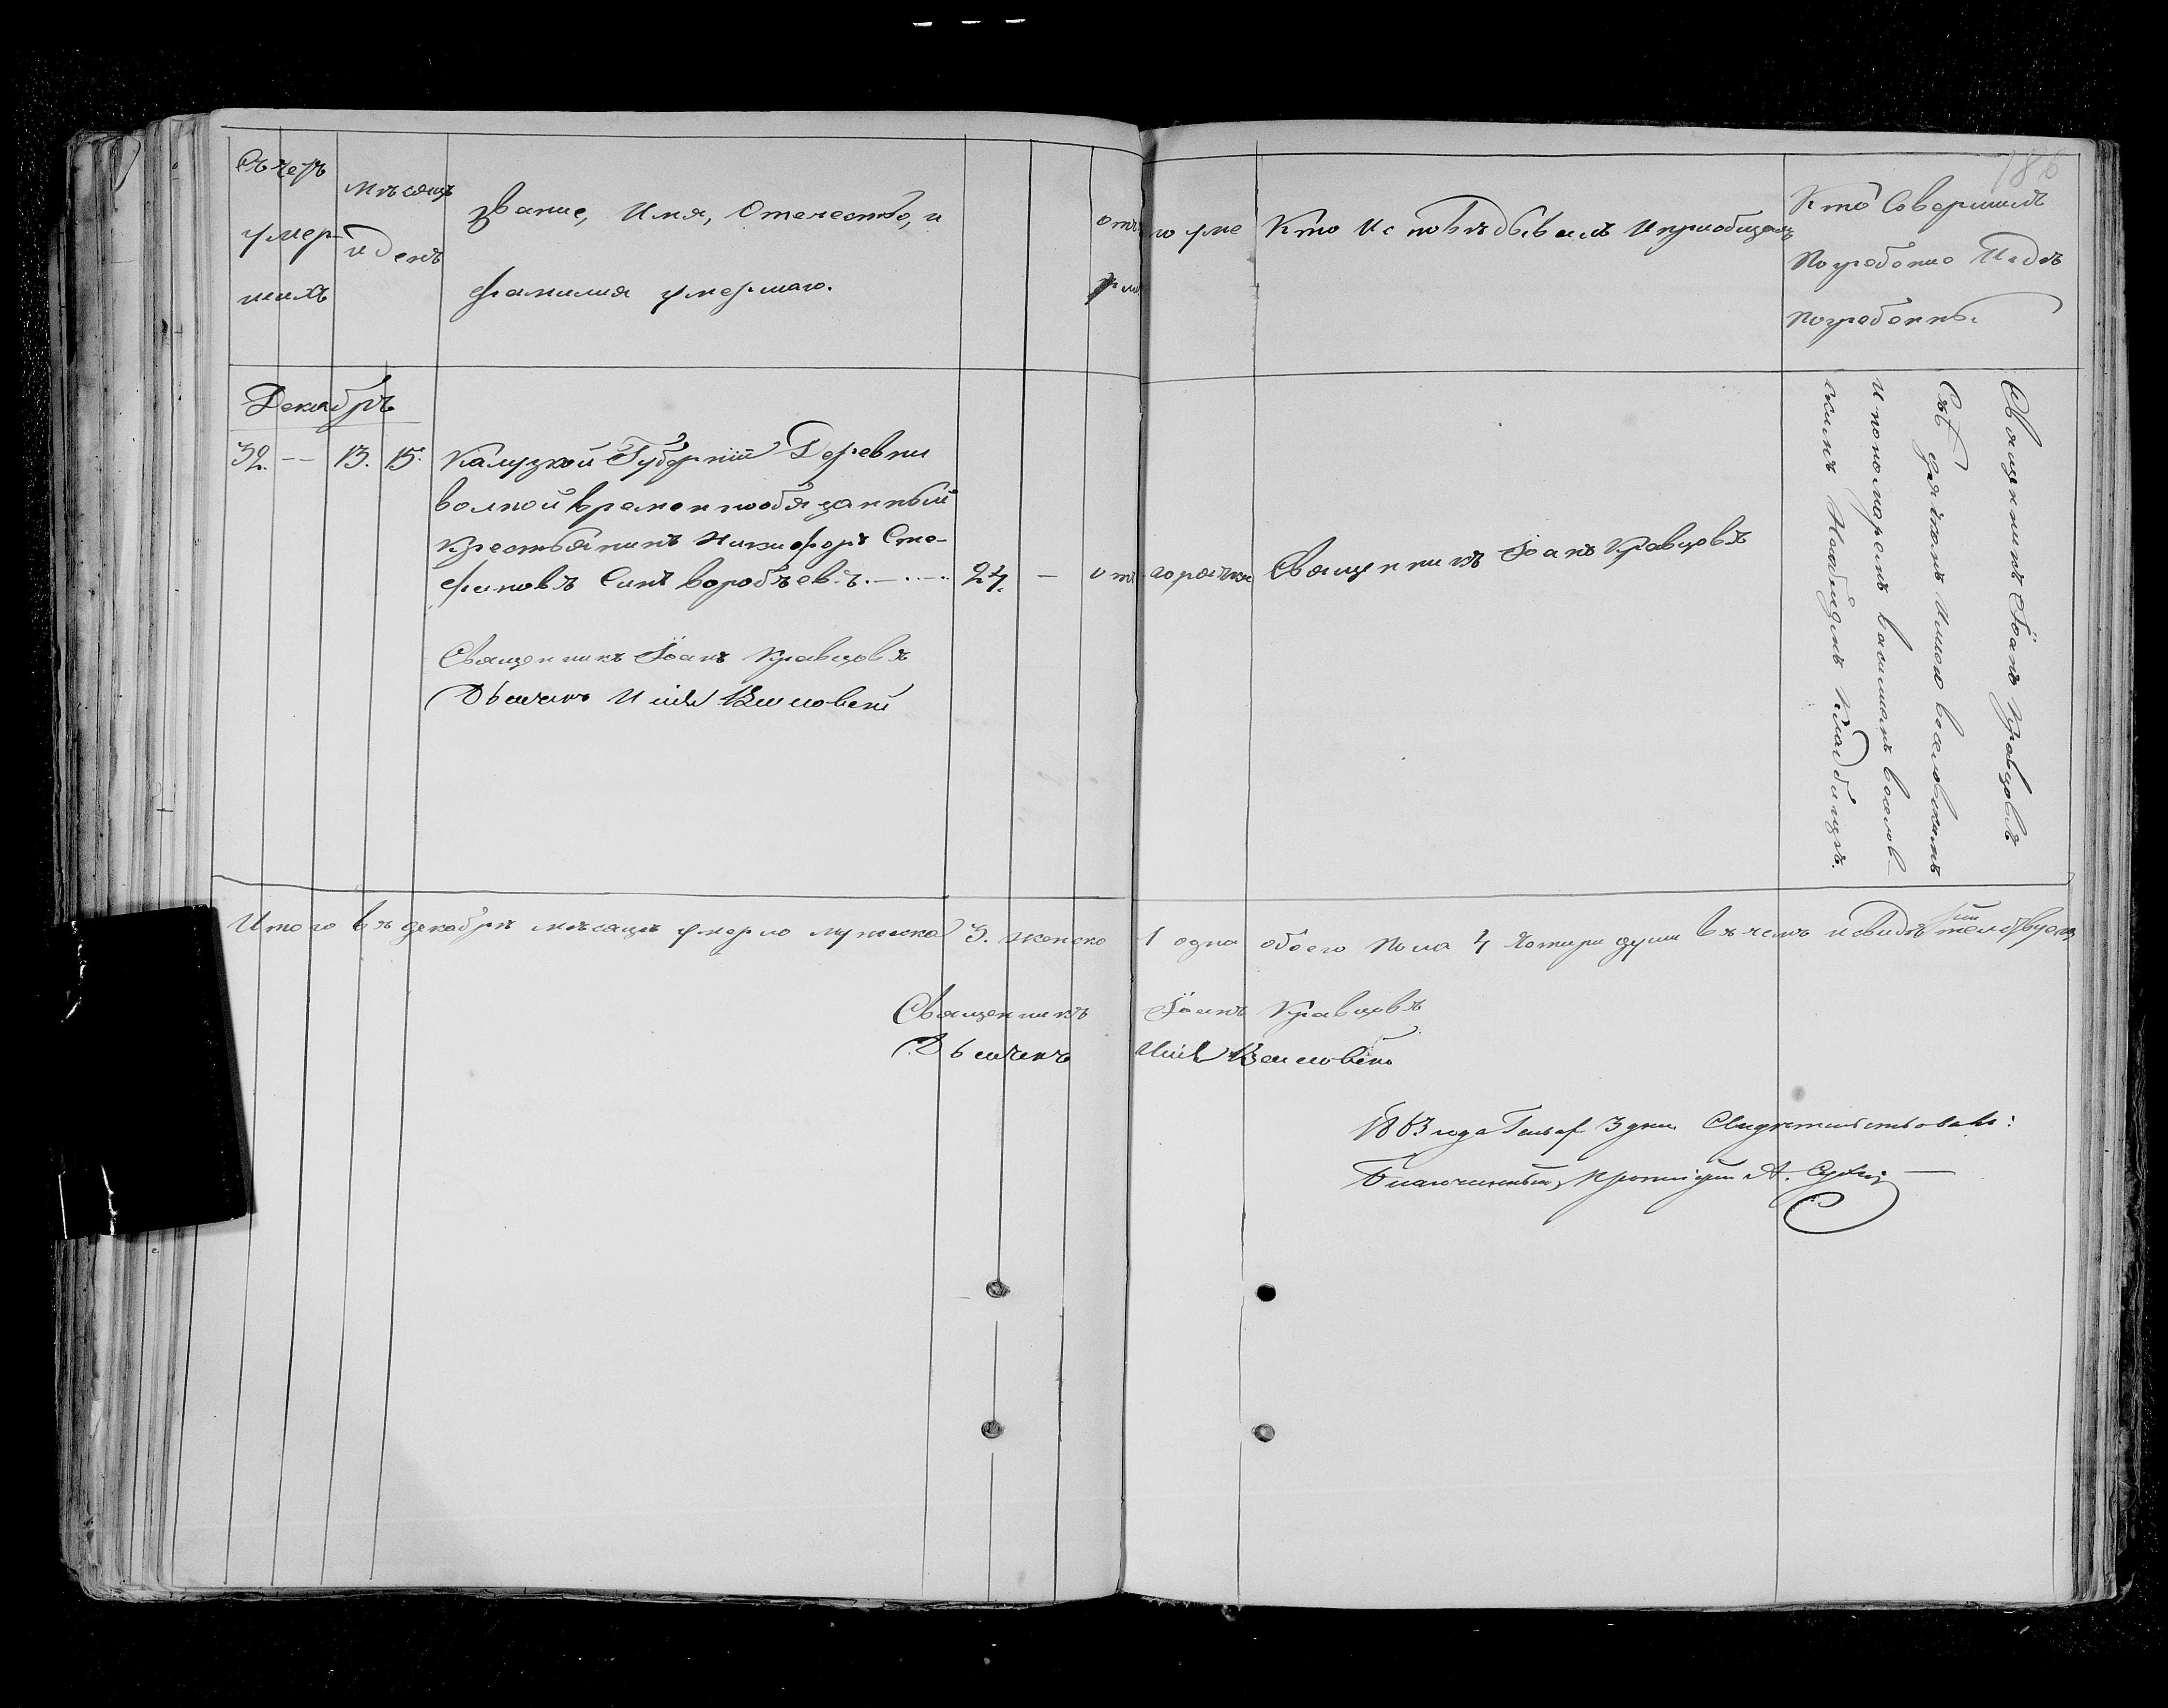 186
Счетъ
умер-
шихъ
мѣсяцъ
и день
Звание, Имя, Отечество, и
фамилия умершаго.
отъ чего уме
рло
Кто Исповѣдывалъ и приобщалъ
Кто Совершилъ
Погребение И гдѣ
погребенны
Декабрь
32. -- 13. 15. Калузкой Губернии Деревни
волкой временнообязанный
Крестьянинъ Никифоръ Сте-
фановъ Синъ воробъевъ. 24. — отъ горячки Священникъ Іоанъ Кравцовъ
Священникъ Іоанъ Кравцовъ
Дьячикъ
Священникъ Іоанъ Кравцовъ
Съ дячкомъ
и пономаремъ василиемъ
Кладбищѣ.
Итого въ декабрѣ мѣсяцѣ умерло мужеска 3. женско 1 одна обоего Пола 4 Хотири души въ чемъ и свидѣтельствуемъ
Священникъ Іоанъ Кравцовъ
Дьячикъ
1863 года Генвар 3 дня Свидетельствовалъ:
Благочинный, Протоіерей А.